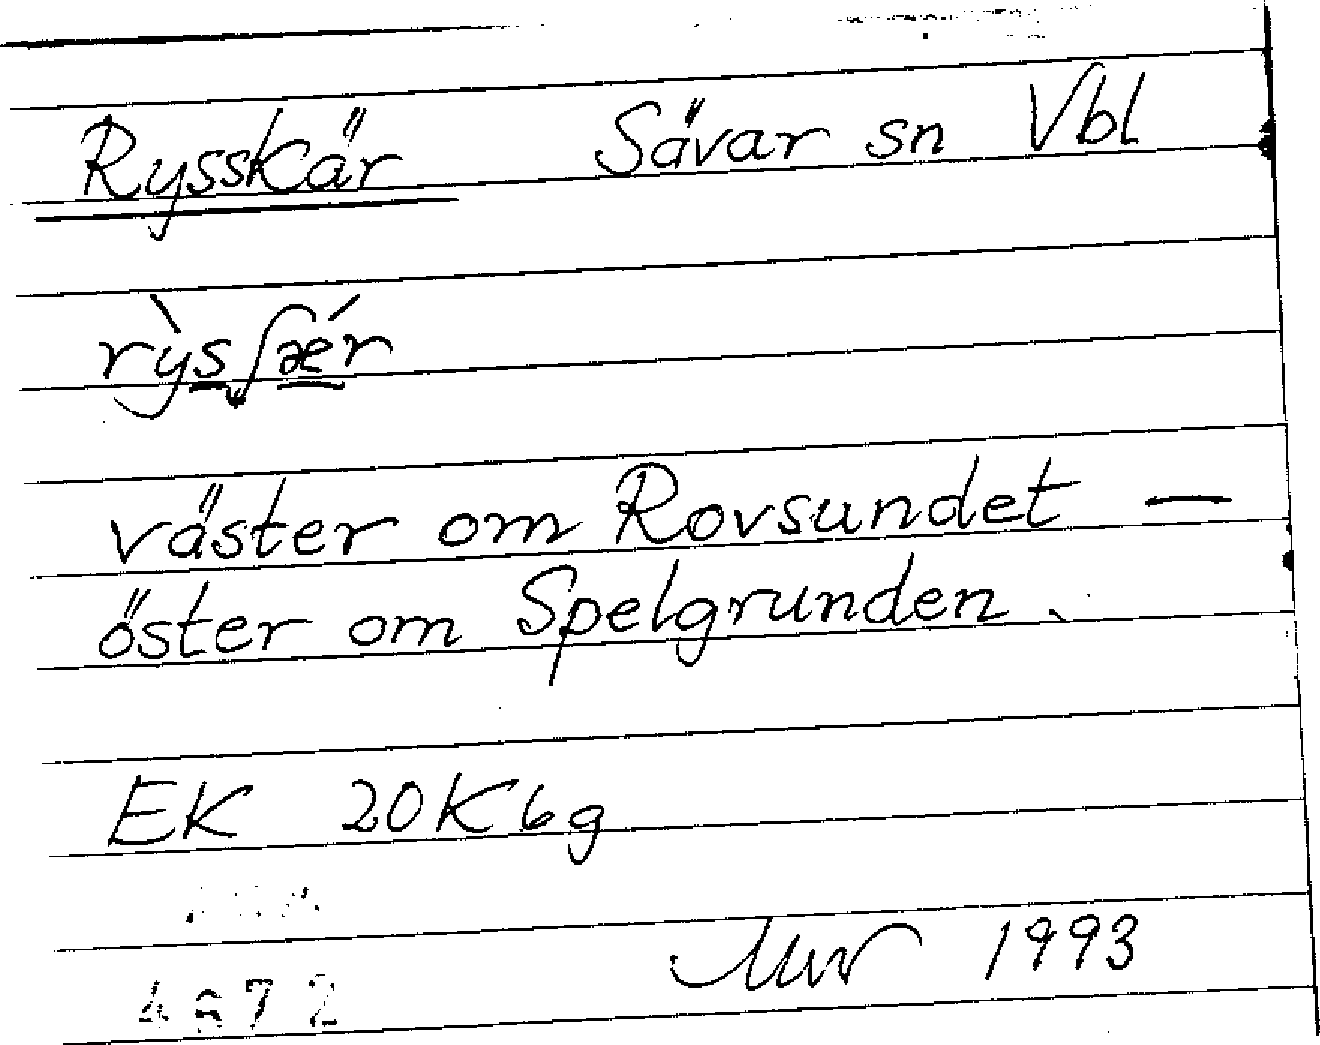 Rysskär Sävar sn Vbl
rỳsʃǽr
väster om Rovsundet —
öster om Spelgrunden.
EK 20K6g
1993